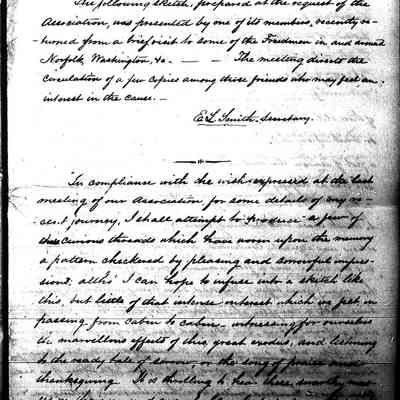 The following sketch, prepared at the request of the
Association, was presented by one of its members, recently re-
-turned from a brief visit to some of the Freedmen in and around
Norfolk, Washington, &c. — — The meeting directs the
circulation of a few copies among those friends who may feel an
interest in the cause. —
E L Smith, Secretary.
In compliance with the wish expressed at the last
meeting of our Association for some details of my re-
cent journey, I shall attempt to produce a few of
the curious threads which have woven upon the memory
a pattern checkered by pleasing and sorrowful impres-
sions, altho' I can hope to infuse into a sketch like
this, but little of that intense interest which we felt in
passing from cabin to cabin, witnessing for ourselves
the marvellous effects of this great exodus, and listening
to the ready tale of sorrow, or the song of praise and
thanksgiving. It is thrilling to hear these swarthy